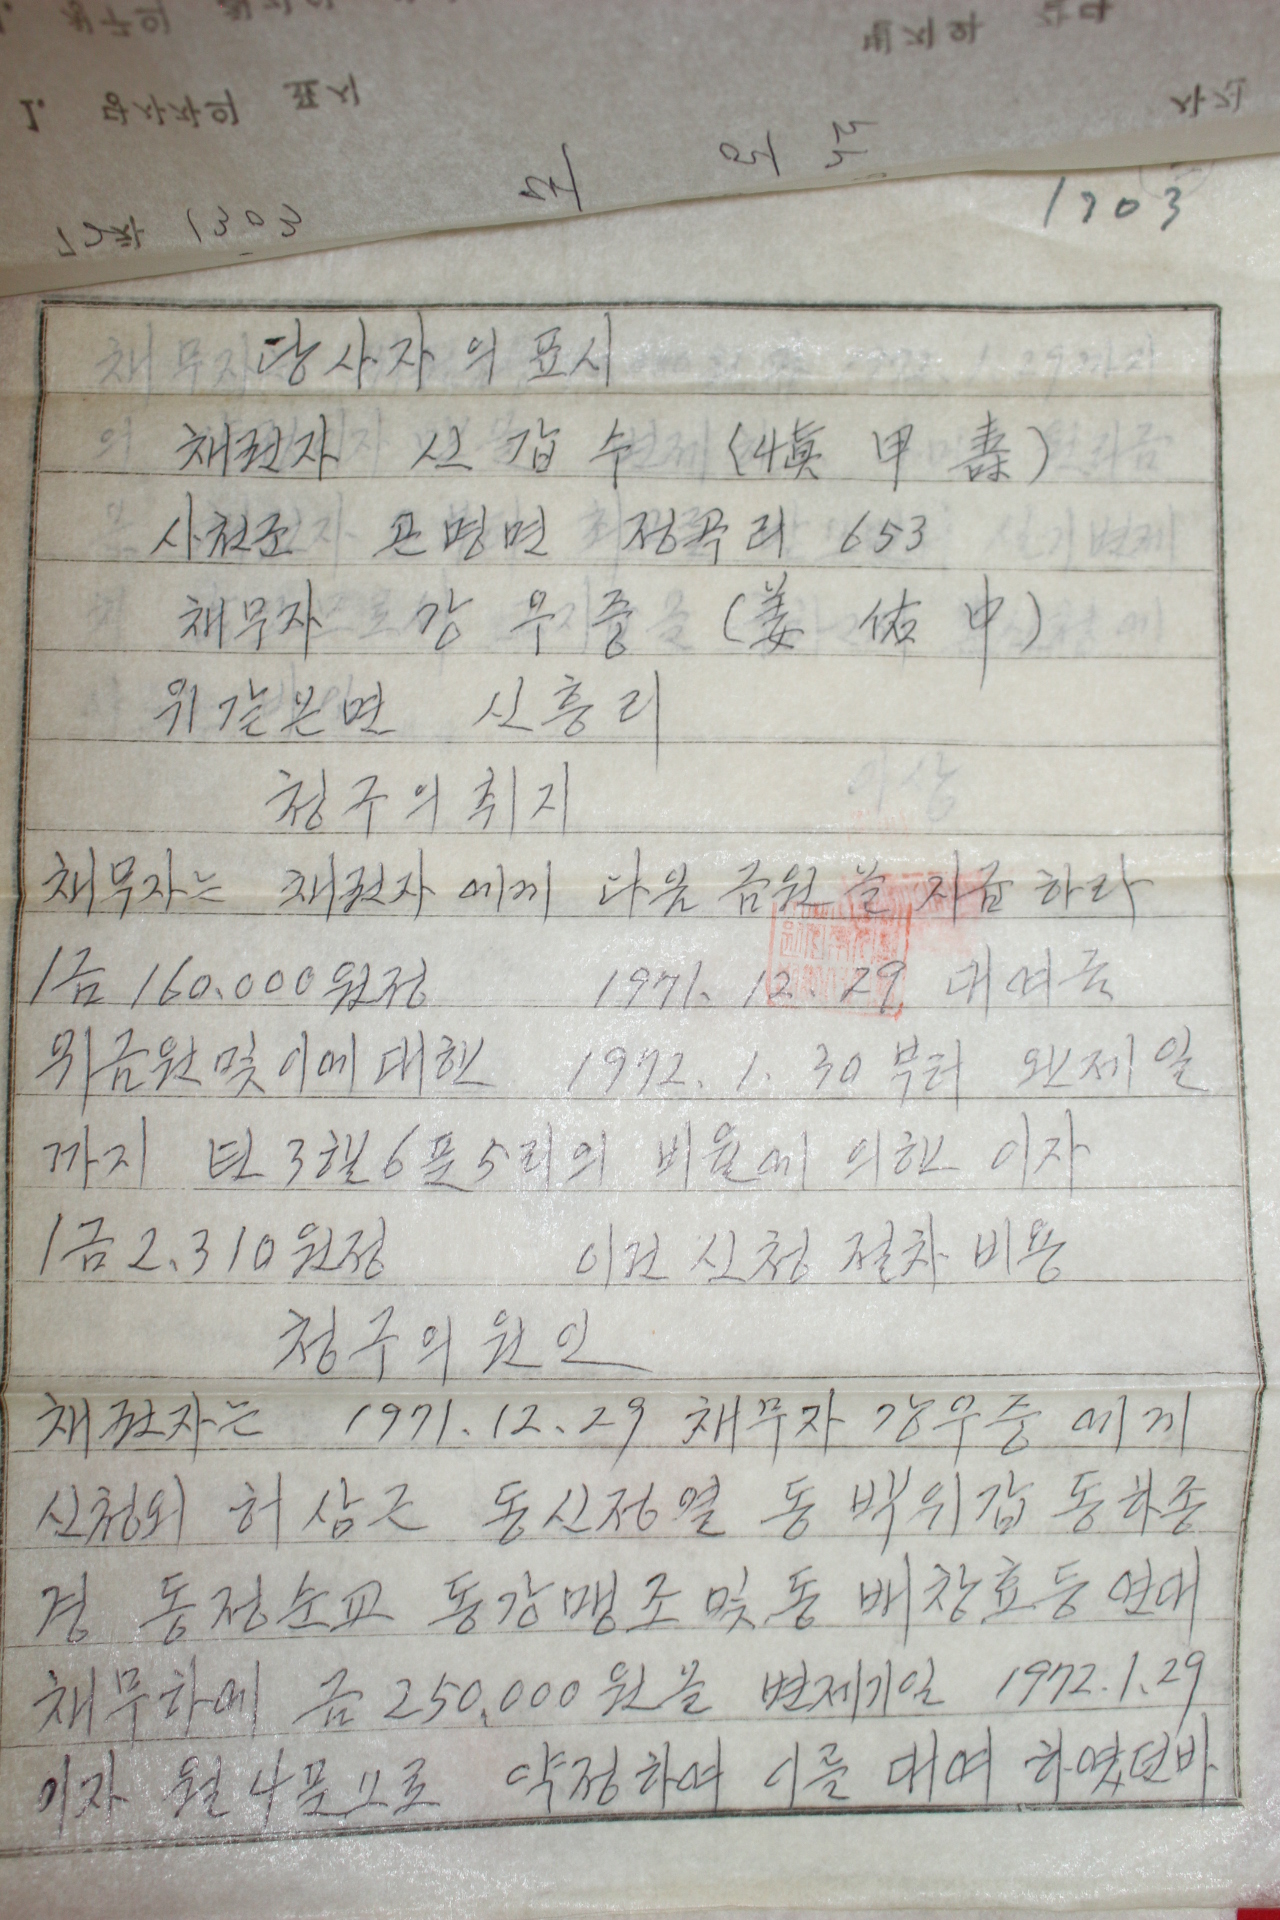 1303
당사자의 표시
채권자 신갑수 (愼甲壽)
사천군 곤명면 정곡리 653
채무자 강우중 (姜佑中)
위같은면 신흥리
청구의취지
채무자는 채권자에게 다음 금원을 지급하라
1금 160.000원정 1971. 12. 29 대여금
위금원및이에대한 1972. 1. 30부터 완제일
까지 년3할6푼5리의 비율에 의한 이자
1금2.310원정 이건 신청 절차 비용
청구의원인
채권자는 1971. 12. 29 채무자 강우중에게
신청외 허삼근 동신정열 동 박위갑 동하종
경 동정순교 동강맹조 및 동 배창효등 연대
채무하에 금 250,000원을 변제기일 1972. 1. 29
이자 월4푼으로 약정하여 이를 대여 하였던바